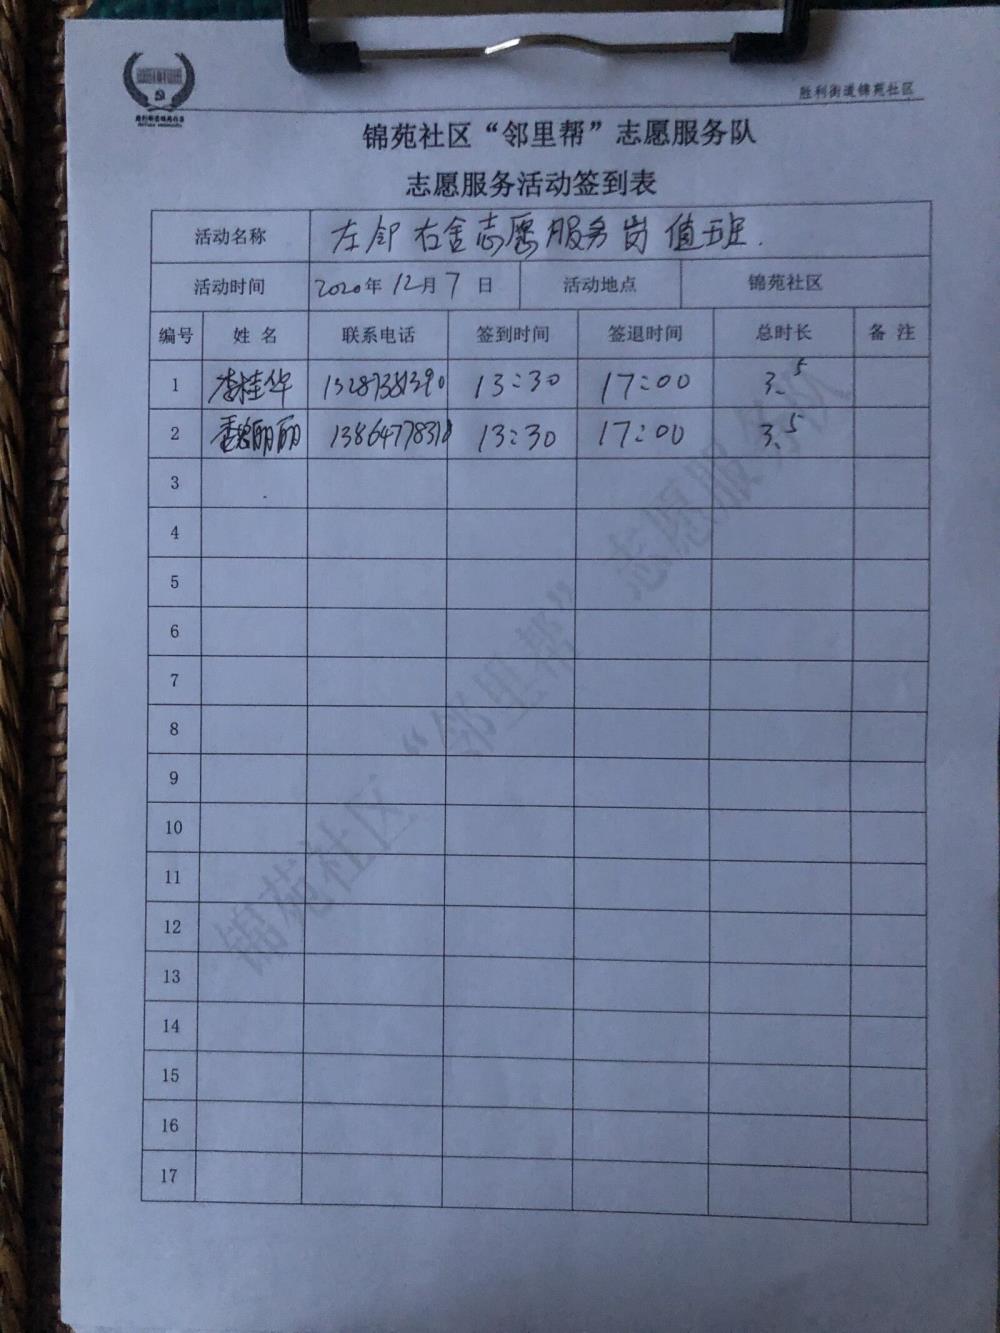 胜利街道锦苑社区
锦苑社区“邻里帮”志愿服务队
志愿服务活动签到表
活动名称 左邻右舍志愿服务岗值班.
活动时间 2020年12月7日 活动地点 锦苑社区
编号 姓名 联系电话 签到时间 签退时间 总时长 备注
1 李桂华 13287381390 13:30 17:00 3.5
2 魏丽丽 13:30 17:00 3.5
3
4
5
6
7
8
9
10
11
12
13
14
15
16
17
锦苑社区“邻里帮”志愿服务队